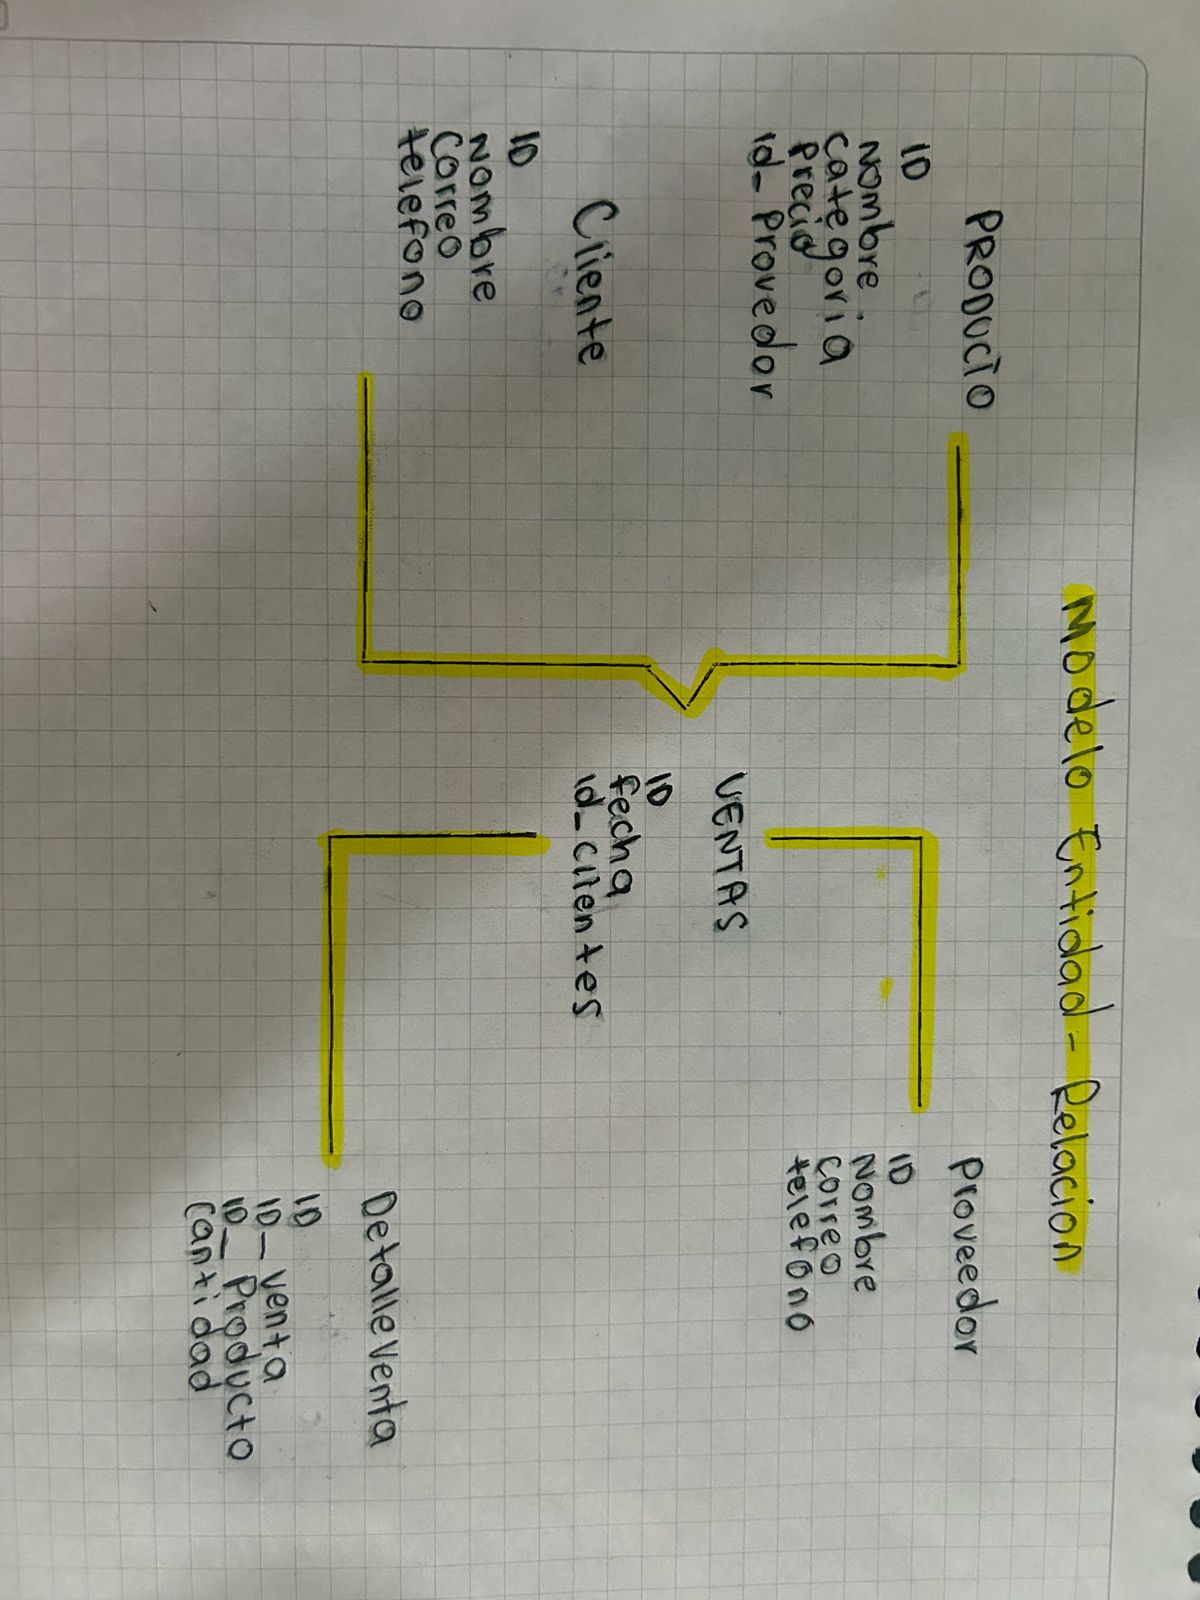 Modelo Entidad - Relacion
PRODUCTO
ID
Nombre
categoria
precio
id_Provedor
Cliente
ID
Nombre
Correo
telefono
VENTAS
ID
fecha
id_clientes
Proveedor
ID
Nombre
Correo
telefono
Detalle venta
ID
ID_venta
ID_Producto
cantidad